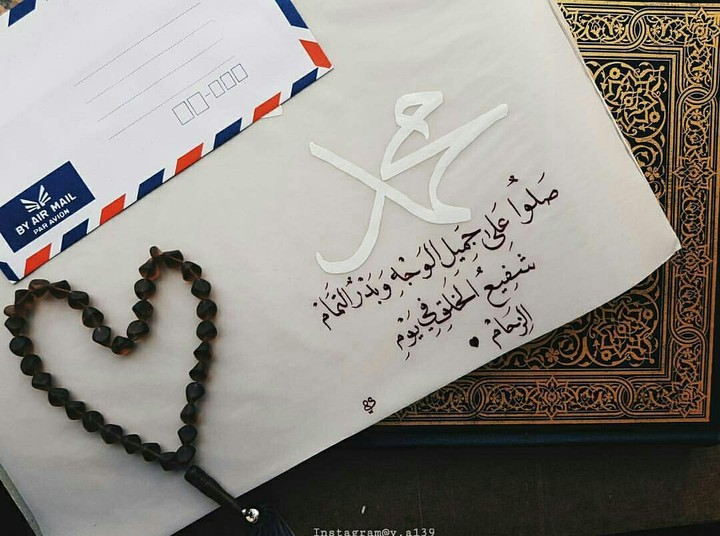 BY AIR MAIL
PAR AVION
محمد
صَلُوا عَلىٰ جَمِيلِ الوَجْهِ وَبَدْرُ التَمَامْ
شَفِيعُ الخَلقِ فِي يَوْمِ
الزِحَامْ
Instagram@y.a139